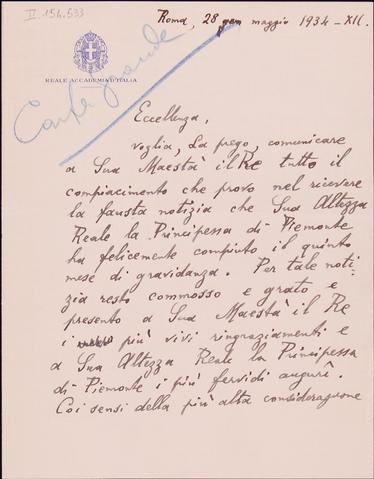 II. 154.533
Roma, 28 maggio 1934-XII.
REALE ACCADEMIA D'ITALIA
Eccellenza,
voglia, La prego, comunicare
a Sua Maestà il Re tutto il
compiacimento che provo nel ricevere
la fausta notizia che Sua Altezza
Reale la Principessa di Piemonte
ha felicemente compiuto il quinto
mese di gravidanza. Per tale noti-
zia resto commosso e grato e
presento a Sua Maestà il Re
i più vivi ringraziamenti e
a Sua Altezza Reale la Principessa
di Piemonte i più fervidi augurî.
Coi sensi della più alta considerazione